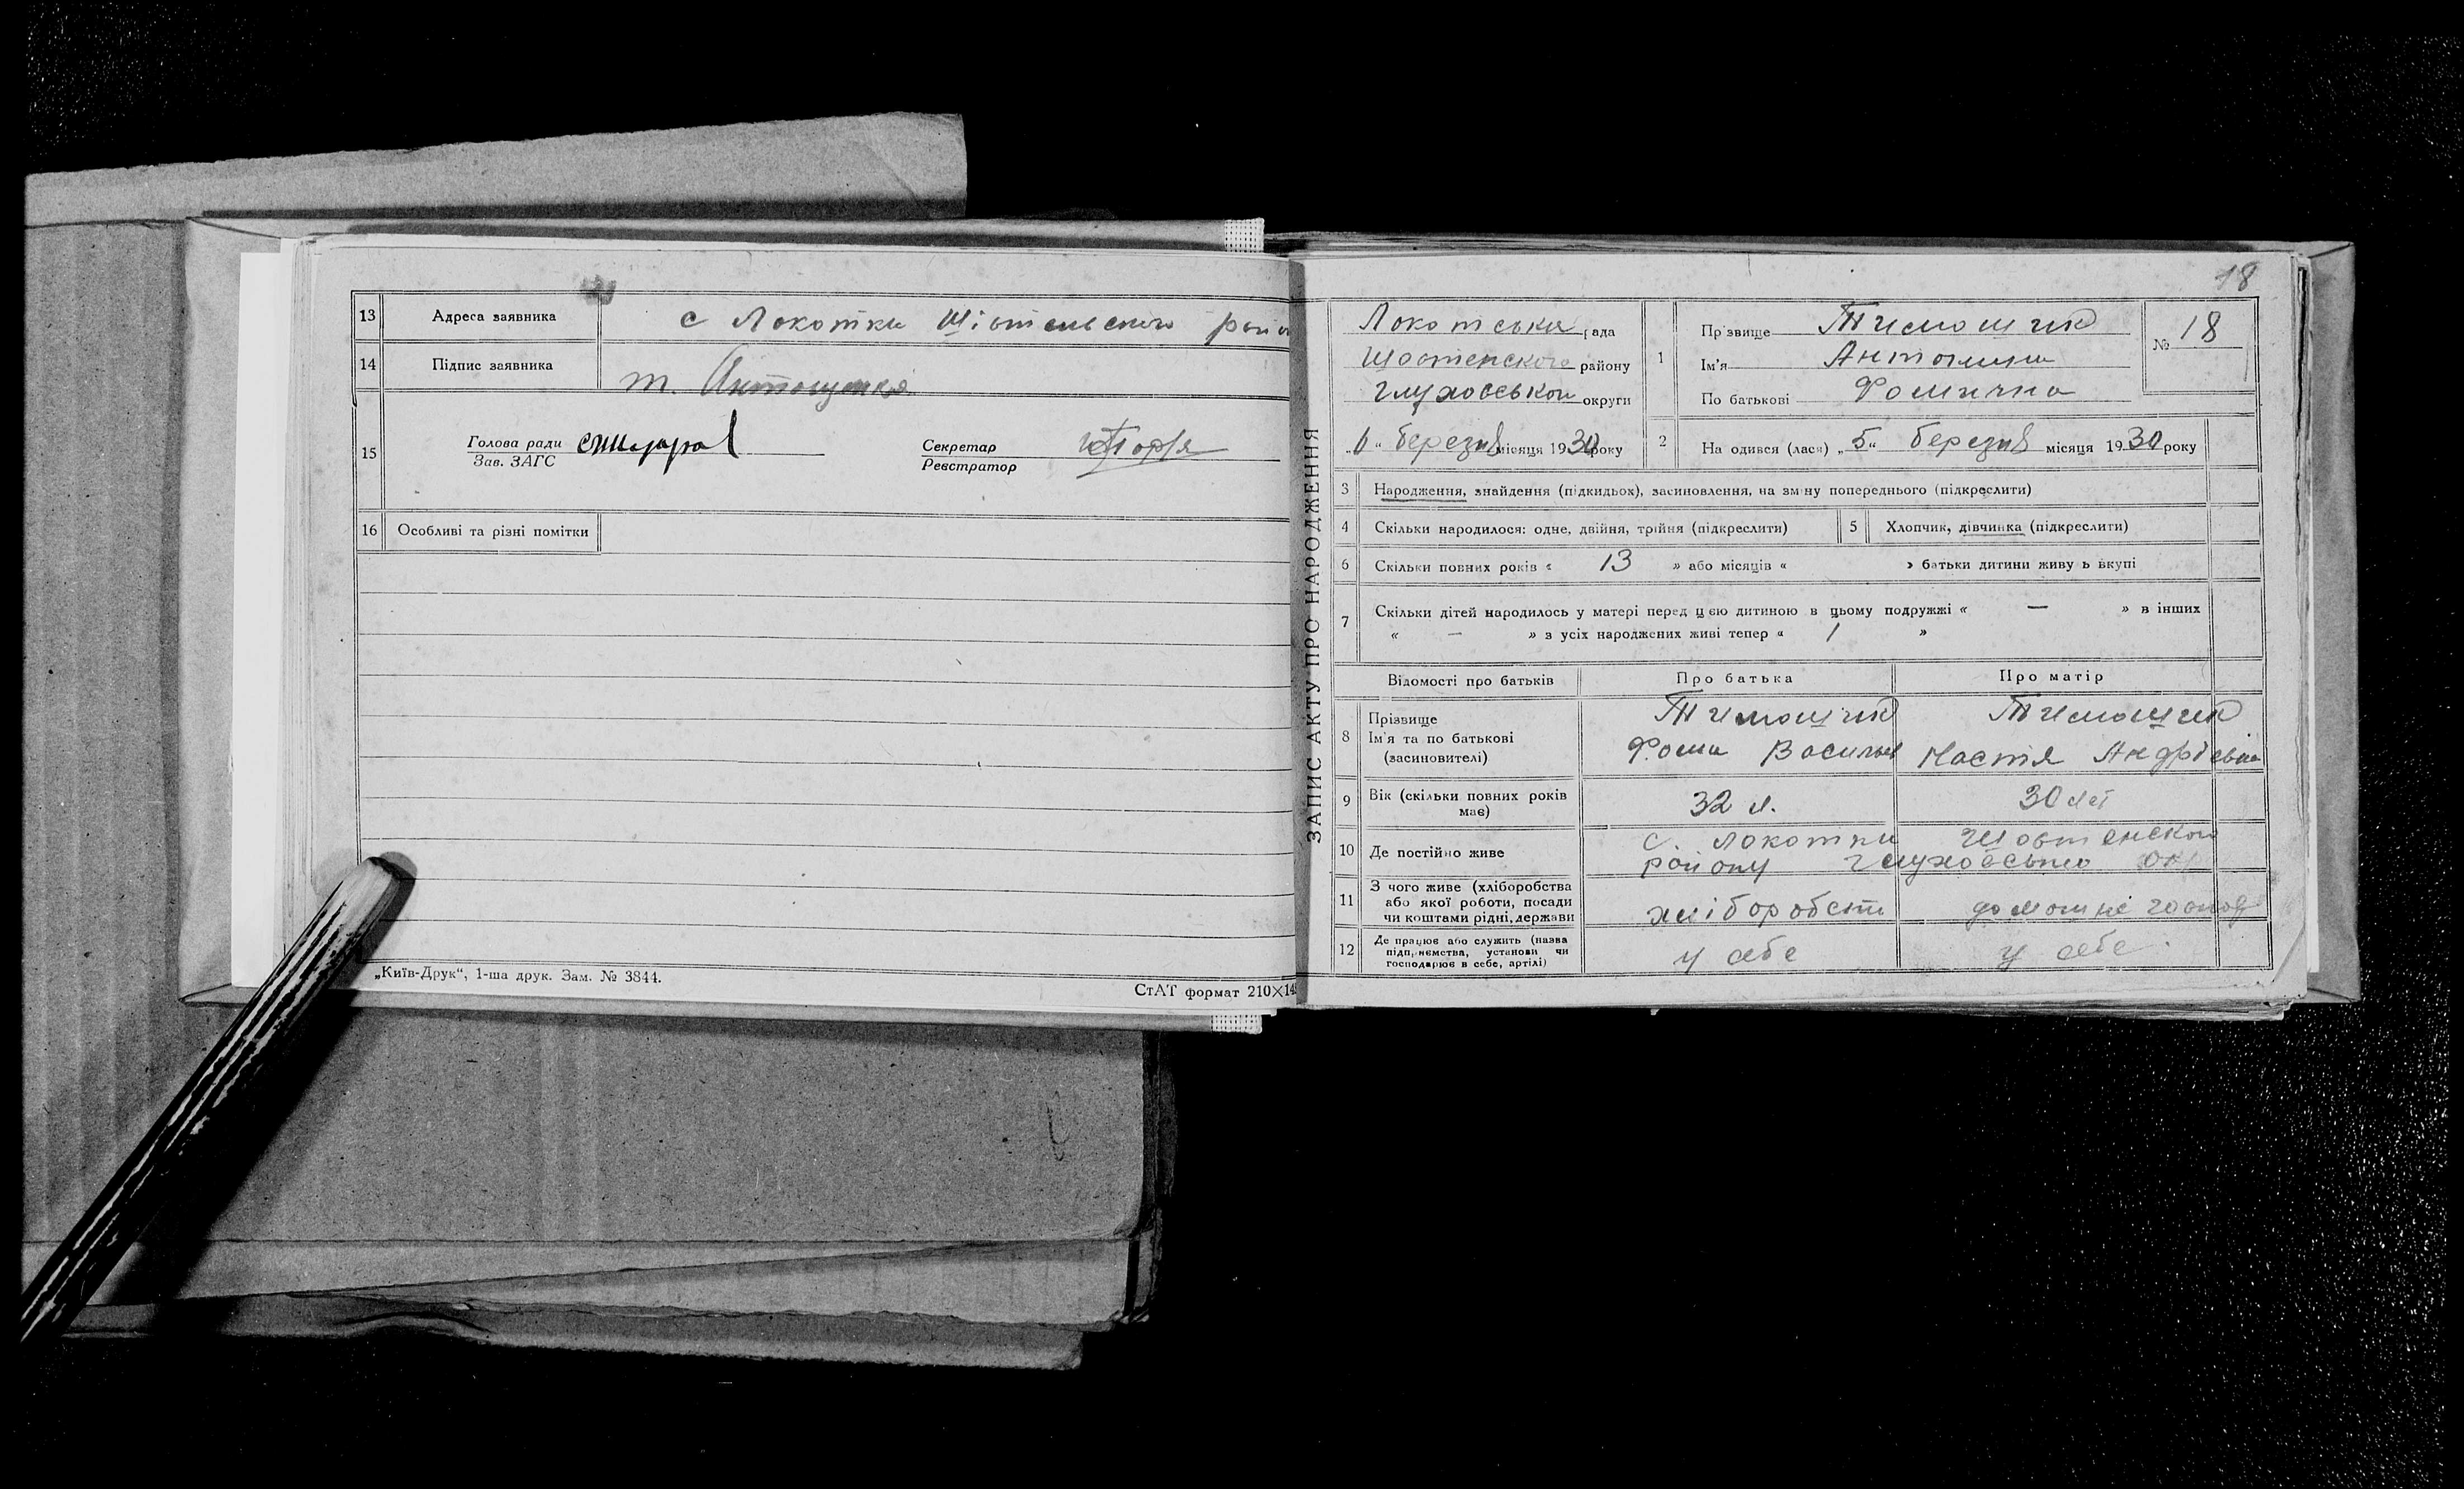 13 Адреса заявника с Локотки Шістенського райо
14 Підпис заявника Т. Антощенко
15 Голова ради
Зав. ЗАГС
Секретар
Реєстратор
16 Особливі та різні помітки
„Київ-Друк“, 1-ша друк. Зам. № 3844.
СтАТ формат 210×14
ЗАПИС АКТУ ПРО НАРОДЖЕННЯ
18
Локотська рада
Шостенского району
Глуховськой округи
„6“ березня місяця 1930 року
1 Прізвище Тимощик
Ім'я Антонина
По батькові Фомична
№ 18
2 На одився (лася) „5“ березня місяця 1930 року
3 Народження, знайдення (підкидьок), засиновлення, на зміну попереднього (підкреслити)
4 Скільки народилося: одне, двійня, трійня (підкреслити)
5 Хлопчик, дівчинка (підкреслити)
6 Скільки повних років « 13 » або місяців « » батьки дитини живу ь вкупі
7 Скільки дітей народилось у матері перед цією дитиною в цьому подружжі « — » в інших
« — » з усіх народжених живі тепер « 1 »
Відомості про батьків Про батька Про матір
8 Прізвище
Ім'я та по батькові
(засновителі)
Тимощик
Фома Васильов
Тимощик
Настя Андрієвна
9 Вік (скільки повних років
має)
32 л. 30 лет
10 Де постійно живе
с. Локотки Шостенского
району Глуховсько окр
11 З чого живе (хліборобства
або якої роботи, посади
чи коштами рідні, держави
хліборобст домашнє господ
12 Де працює або служить (назва
підприємства, установи чи
господарює в себе, артілі)
у себе у себе